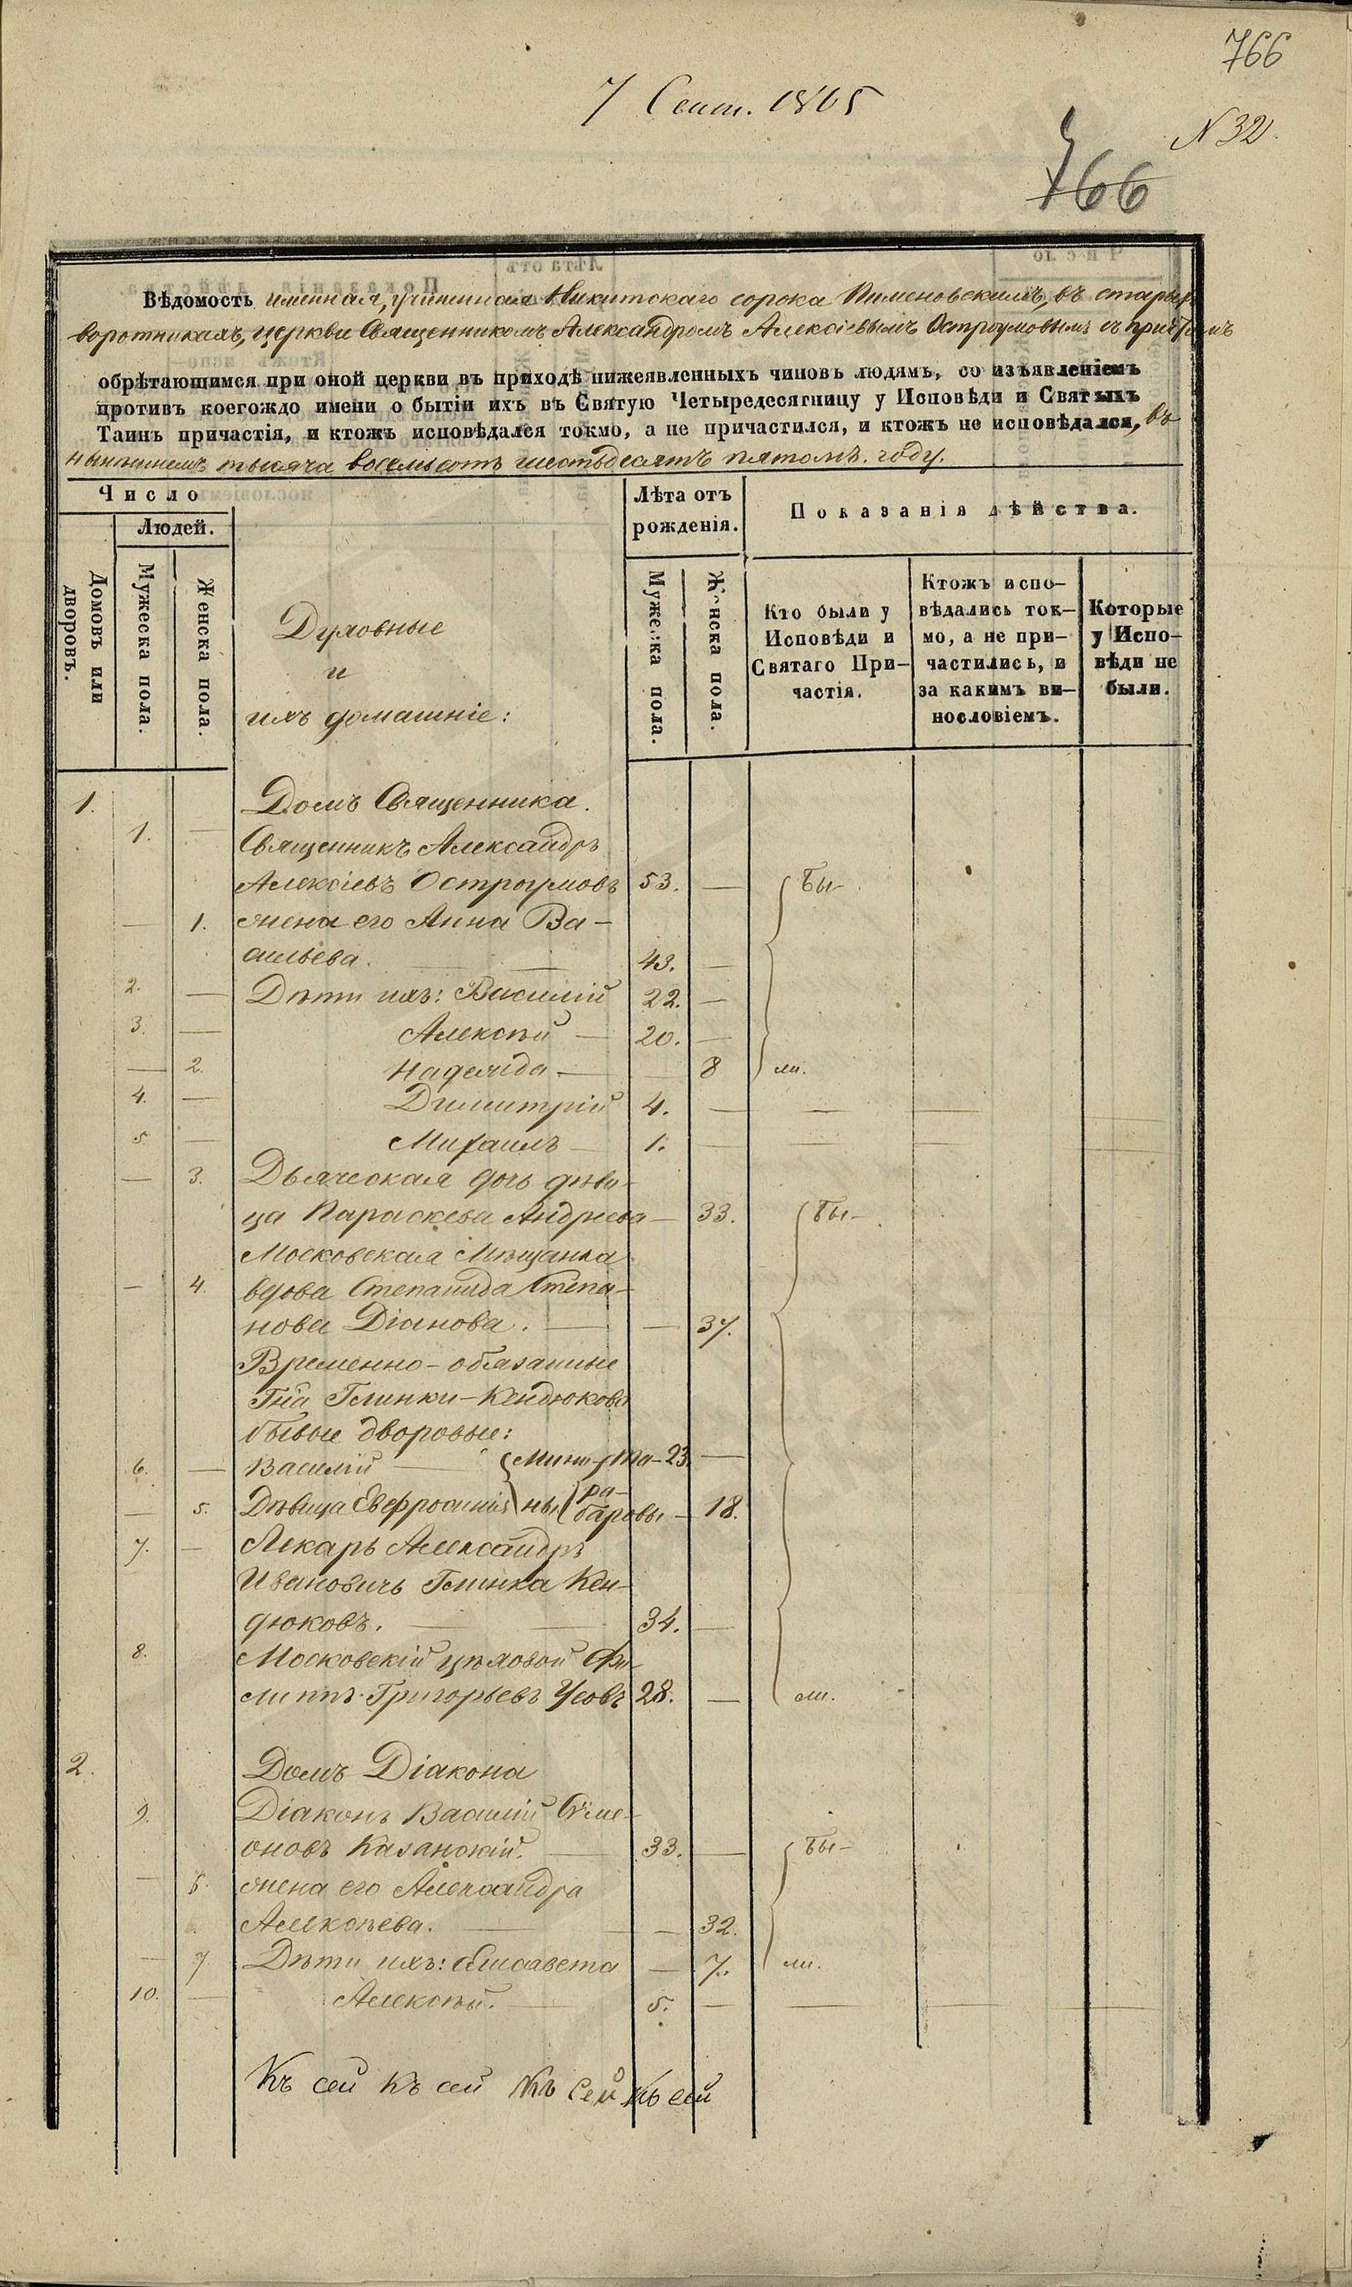 766
7 Сент. 1865
N 32.
766
Вѣдомость именная, учиненная Никитскаго сорока Пименовскимъ, въ старыхъ
воротникахъ, церкви Священникомъ Александромъ Алексіевымъ Остроумовымъ съ причтомъ
обрѣтающимся при оной церкви въ приходѣ нижеявленныхъ чиновъ людямъ, со изъявленіемъ
противъ коегождо имени о бытіи ихъ въ Святую Четыредесятницу у Исповѣди и Святыхъ
Таинъ причастія, и ктожъ исповѣдался токмо, а не причастился, и ктожъ не исповѣдался, въ
нынѣшнемъ тысяча восемьсотъ шестьдесятъ пятомъ году.
Число
Людей.
Домовъ или дворовъ.
Мужеска пола.
Женска пола.
Духовные
и
ихъ домашніе:
Лѣта отъ рожденія.
Мужеска пола.
Женска пола.
Показанія дѣйства.
Кто были у Исповѣди и Святаго Причастія.
Ктожъ испо-
вѣдались ток-
мо, а не при-
частились, и
за какимъ ви-
нословіемъ.
Которые
у Испо-
вѣди не
были.
1. Домъ Священника.
1. — Священникъ Александръ
Алексіевъ Остроумовъ 53. — Бы-
— 1. жена его Анна Ва-
сильева. — — 43. —
2. — Дѣти ихъ: Василій 22. —
3. — Алексѣй — 20. —
— 2. Надежда — — 8 ли.
4. — Димитрій 4. — — —
5. — Михаилъ — 1. — — — —
— 3. Дьяческая дочь дѣви-
ца Параскева Андреева — 33. Бы-
Московская Мѣщанка
— 4. вдова Степанида Степа-
нова Діанова. — — 37.
Временно-обязанные
Гна Глинки-Кендюкова
бывые дворовые:
6. — Василій — Мини- Та- 23. —
— 5. Дѣвица Евфросинія ны ра-
баровы — 18.
7. — Лекарь Александръ
Ивановичъ Глинка Кен-
дюковъ. — — 34. —
8. Московскій цѣховой Фи-
липпъ Григорьевъ Усовъ 28. — ли.
2. Домъ Діакона
9. Діаконъ Василій Сѵме-
оновъ Казанскій. — 33. — Бы-
— 6. жена его Александра
Алексѣева. — — 32.
— 7 Дѣти ихъ: Елисавета — 7. ли.
10. — Алексѣй. — 5. — — — —
Къ сей къ сей Къ Сей къ сей